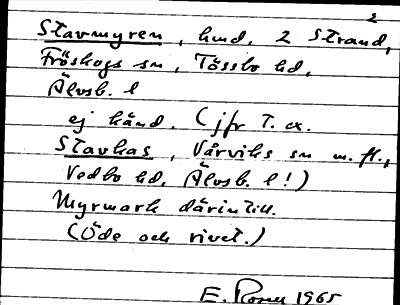 2
Stavmyren, hmd, 2 Strand,
Fröskogs sn, Tössbo hd,
Älvsb. l
ej känd. (jfr T. ex.
Stavkas, Vårviks sn m. fl.,
Vedbo hd, Älvsb. l!)
Myrmark därintill.
(Öde och rivet.)
E. 1965